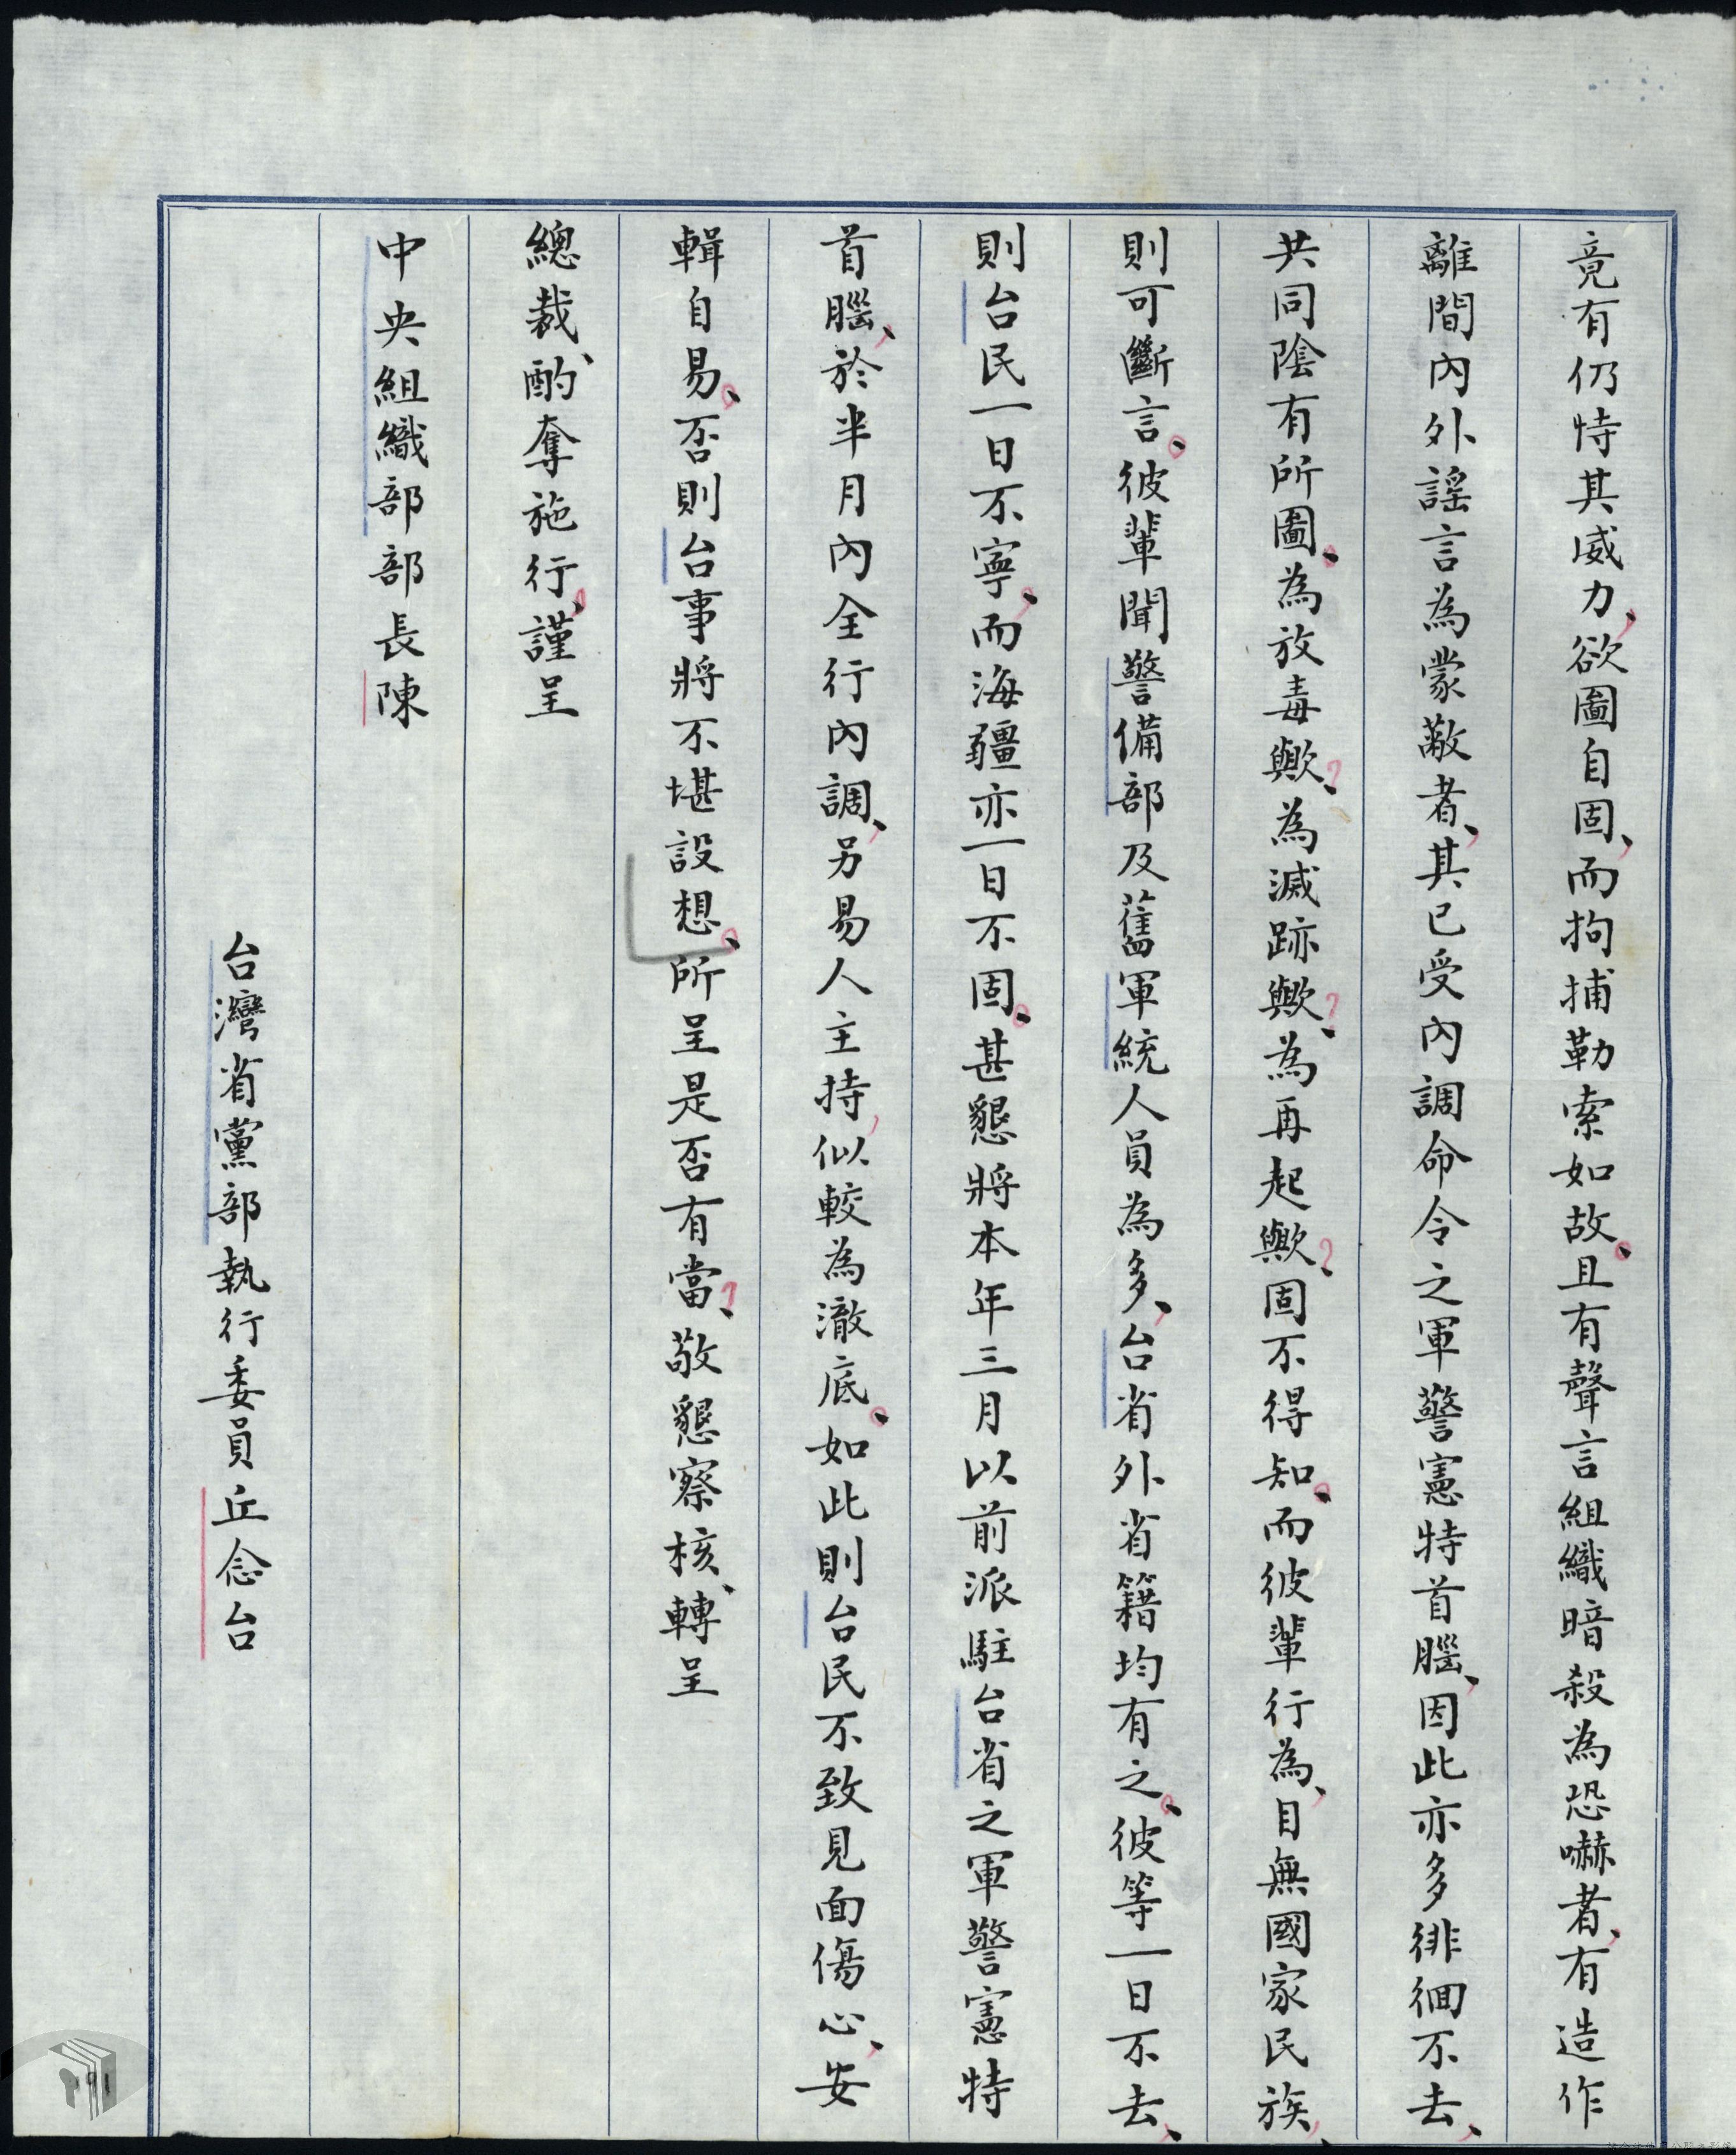 竟有仍恃其威力、欲圖自固、而拘捕勒索如故、且有聲言組織暗殺為恐嚇者、有造作
離間內外謠言為蒙蔽者、其已受內調命令之軍警憲特首腦、因此亦多徘徊不去、
共同陰有所圖、為放毒歟、為滅跡歟、為再起歟、固不得知、而彼輩行為、目無國家民族、
則可斷言、彼輩聞警備部及舊軍統人員為多、台省外省籍均有之、彼等一日不去、
則台民一日不寧、而海疆亦一日不固、甚懇將本年三月以前派駐台省之軍警憲特
首腦、於半月內全行內調、另易人主持，似較為澈底、如此則台民不致見面傷心、安
輯自易、否則台事將不堪設想、所呈是否有當、敬懇察核、轉呈
總裁、酌奪施行、謹呈
中央組織部部長陳
台灣省黨部執行委員丘念台